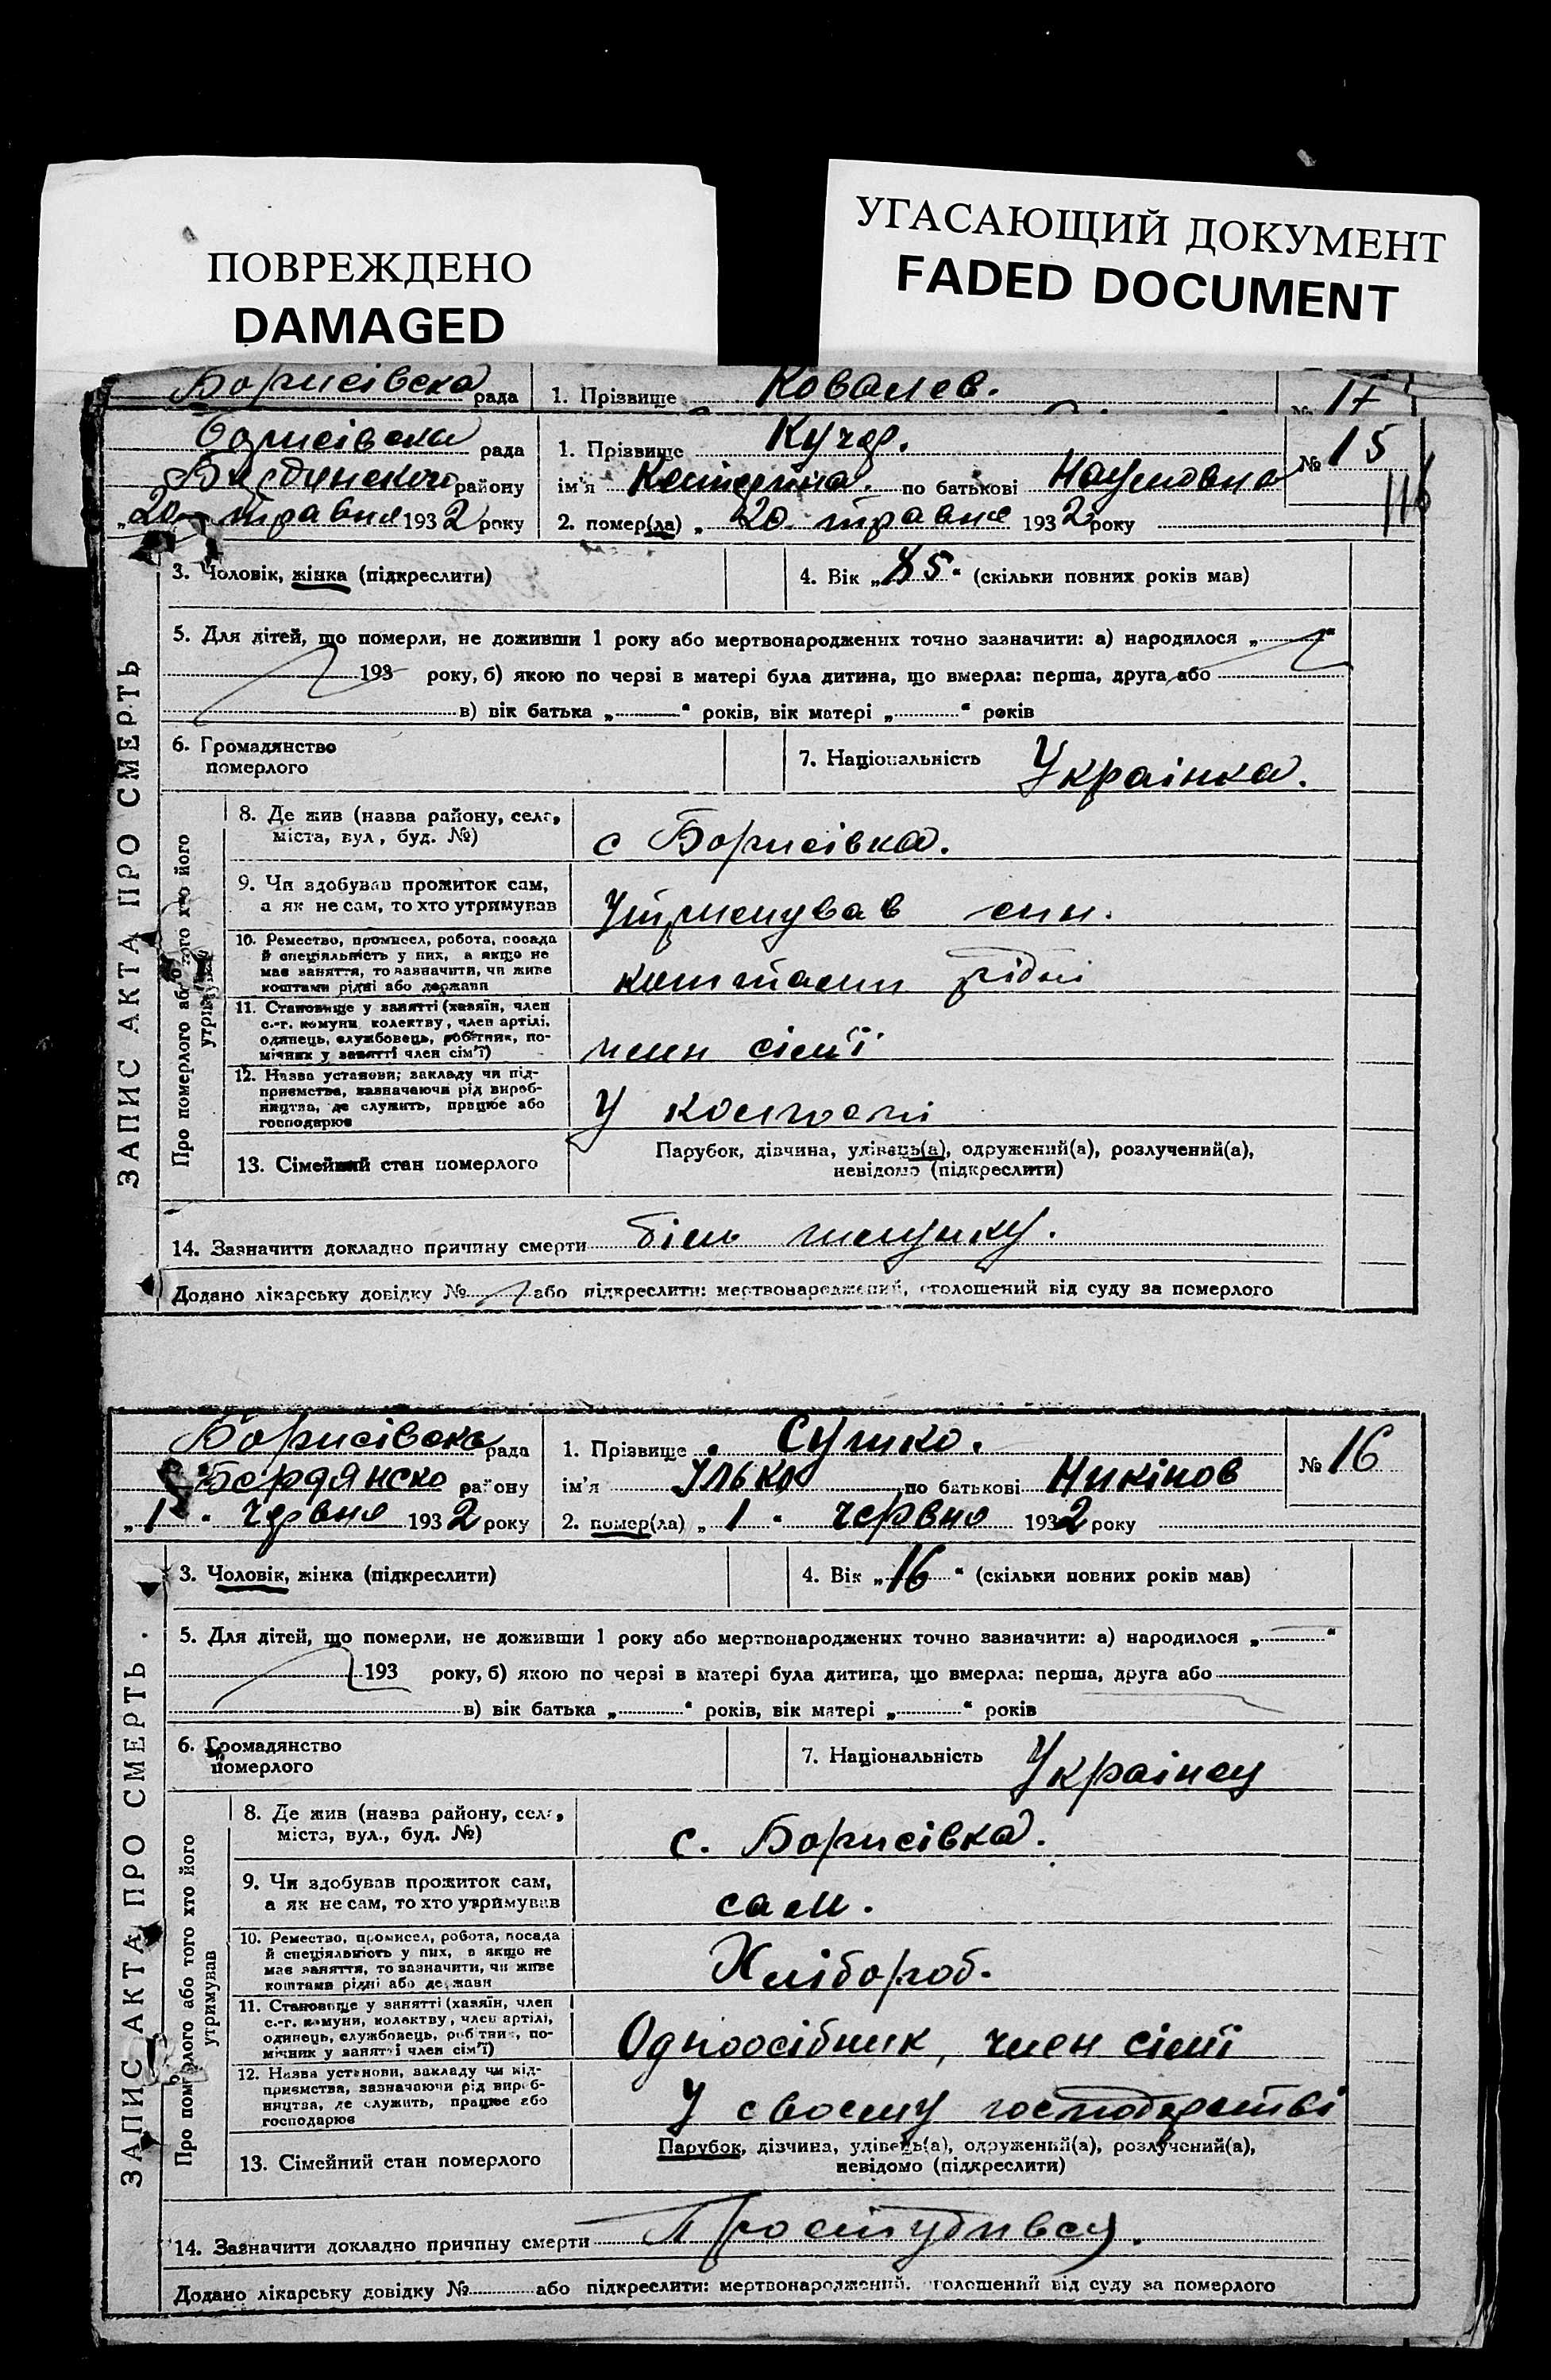 ПОВРЕЖДЕНО
DAMAGED
УГАСАЮЩИЙ ДОКУМЕНТ
FADED DOCUMENT
Борисівска рада 1. Прізвище Ковалев. № 17
Борисівска рада 1. Прізвище Кучер. № 15
району ім'я Катерина. по батькові Наумовна
116
„20 травня 1932 року 2. помер(ла) „20 травня 1932 року
3. Чоловік, жінка (підкреслити) 4. Вік „85“ (скільки повних років мав)
5. Для дітей, що померли, не доживши 1 року або мертвонароджених точно зазначити: а) народилося „ “
193 року, б) якою по черзі в матері була дитина, що вмерла: перша, друга, або
в) вік батька „ “ років, вік матері „ “ років
6. Громадянство померлого 7. Національність Украінка.
ЗАПИС АКТА ПРО СМЕРТЬ
Про померлого або того хто його утримував
8. Де жив (назва району, села, міста, вул, буд. №) с Борисівка.
9. Чи здобував прожиток сам, а як не сам, то хто утримував Утримував син.
10. Ремество, промисел, робота, посада й спеціяльність у них, а якщо не має заняття, то зазначити, чи живе коштами рідні або держави коштами рідні
11. Становище у занятті (хазяїн, член с.-г. комуни колектву, член артілі, одинець, службовець, робітник, помічник у занятті член сім'ї) член сімї
12. Назва установи; закладу чи підприємства, зазначаючи рід виробництва, де служить, працює або господарює У колгоспі
13. Сімейний стан померлого Парубок, дівчина, удівець(а), одружений(а), розлучений(а), невідомо (підкреслити)
14. Зазначити докладно причину смерти біль шлунку.
Додано лікарську довідку № або підкреслити: мертвонароджений, оголошений від суду за померлого
Борисівска рада 1. Прізвище Сушко. № 16
Бердянско району ім'я Ілько по батькові Никінов
„1“ червня 1932 року 2. помер(ла) „1“ червня 1932 року
3. Чоловік, жінка (підкреслити) 4. Вік „16“ (скільки повних років мав)
5. Для дітей, що померли, не доживши 1 року або мертвонароджених точно зазначити: а) народилося „ “
193 року, б) якою по черзі в матері була дитина, що вмерла: перша, друга або
в) вік батька „ “ років, вік матері „ “ років
6. Громадянство померлого 7. Національність Украінец
ЗАПИС АКТА ПРО СМЕРТЬ
Про померлого або того хто його утримував
8. Де жив (назва району, села, міста, вул., буд. №) с. Борисівка.
9. Чи здобував прожиток сам, а як не сам, то хто утримував сам.
10. Ремество, промисел, робота, посада й спеціяльність у них, а якщо не має заняття, то зазначити, чи живе коштами рідні або держави Хлібороб.
11. Становище у занятті (хазяїн, член с.-г. комуни, колектву, член артілі, одинець, службовець, робітник, помічник у занятті член сім'ї) Одноосібник, член сімї
12. Назва установи, закладу чи підприємства, зазначаючи рід виробництва, де служить, працює або господарює У своєму господарстві
13. Сімейний стан померлого Парубок, дівчина, удівець(а), одружений(а), розлучений(а), невідомо (підкреслити)
14. Зазначити докладно причину смерти Простудився.
Додано лікарську довідку № або підкреслити: мертвонароджений, оголошений від суду за померлого